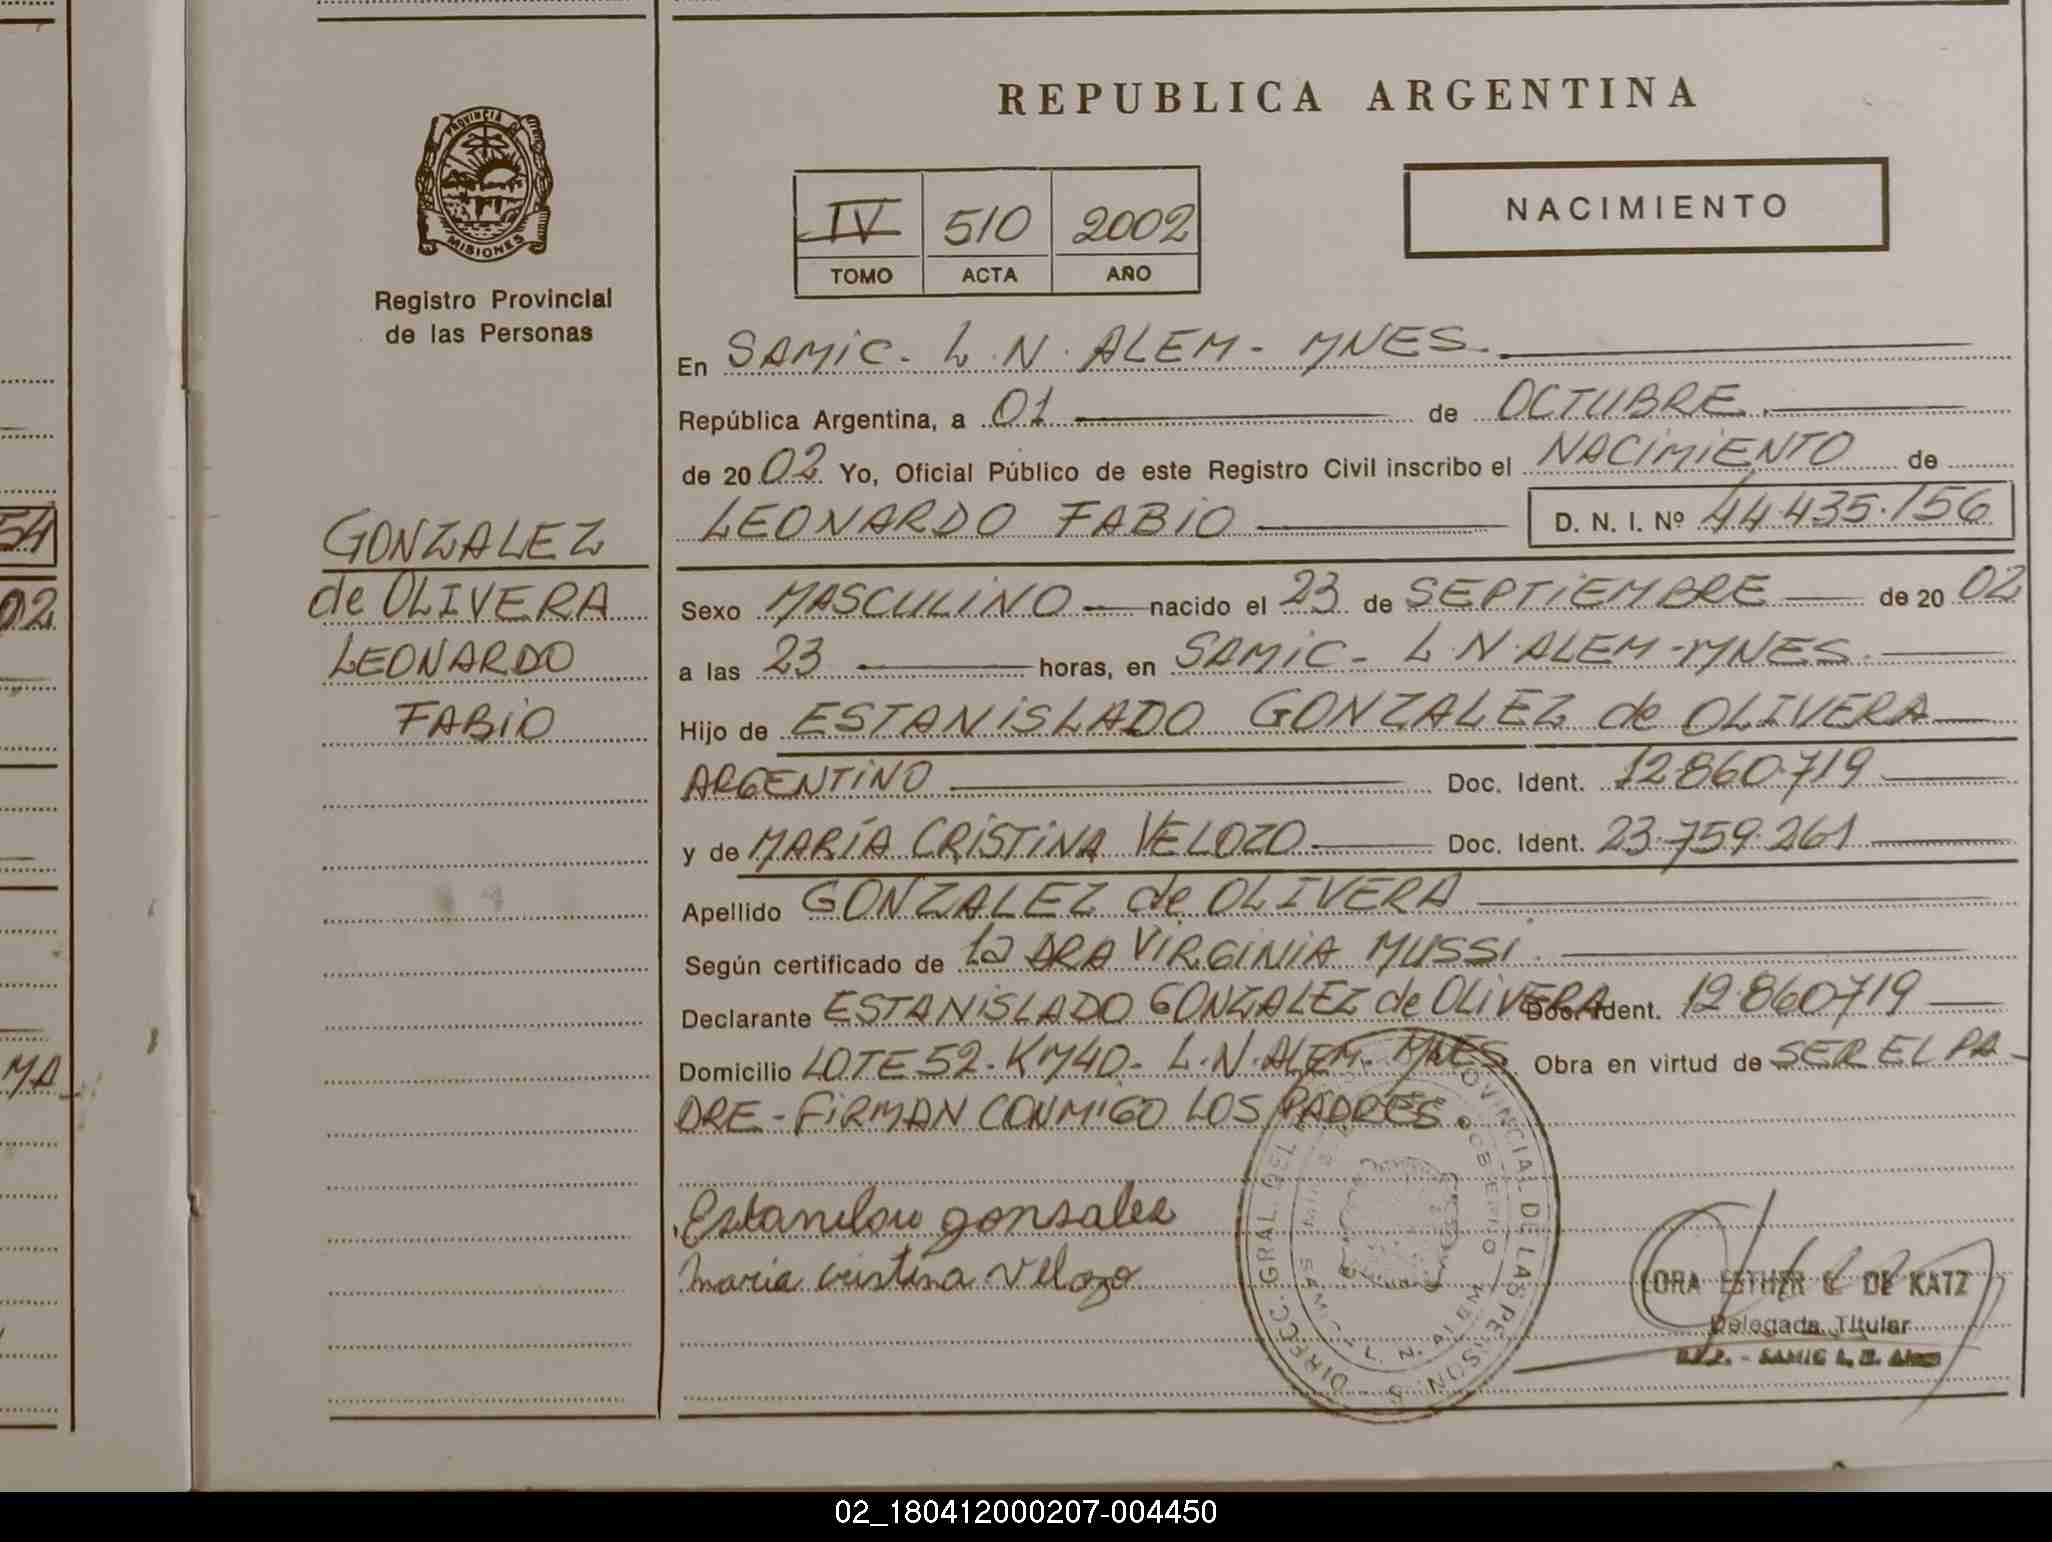 54
02
MA
PROVINCIA DE
MISIONES
Registro Provincial
de las Personas
GONZALEZ
de OLIVERA
LEONARDO
FABIO
REPUBLICA ARGENTINA
IV 510 2002
TOMO ACTA AÑO
NACIMIENTO
En SAMIC - L.N. ALEM - MNES.
República Argentina, a 01 de OCTUBRE
de 2002 Yo, Oficial Público de este Registro Civil inscribo el NACIMIENTO de
LEONARDO FABIO D. N. I. Nº 44.435.156
Sexo MASCULINO nacido el 23 de SEPTIEMBRE de 2002
a las 23 horas, en SAMIC - L.N. ALEM - MNES.
Hijo de ESTANISLADO GONZALEZ de OLIVERA
ARGENTINO Doc. Ident. 12.860.719
y de MARÍA CRISTINA VELOZO Doc. Ident. 23.759.261
Apellido GONZALEZ de OLIVERA
Según certificado de la DRA VIRGINIA MUSSI.
Declarante ESTANISLADO GONZALEZ de OLIVERA Doc. Ident. 12.860719
Domicilio LOTE 52 - KM40 - L.N. ALEM - MNES. Obra en virtud de SER EL PA-
DRE - FIRMAN CONMIGO LOS PADRES.
gonsales
maria cristina velozo
DIRECC. GRAL. DEL PROVINCIAL DE LAS PERSONAS
GOBIERNO
SAMIC L. N. ALEM
ESTHER DE KATZ
Delegada Titular
SAMIC L. N. Alem
02_180412000207-004450